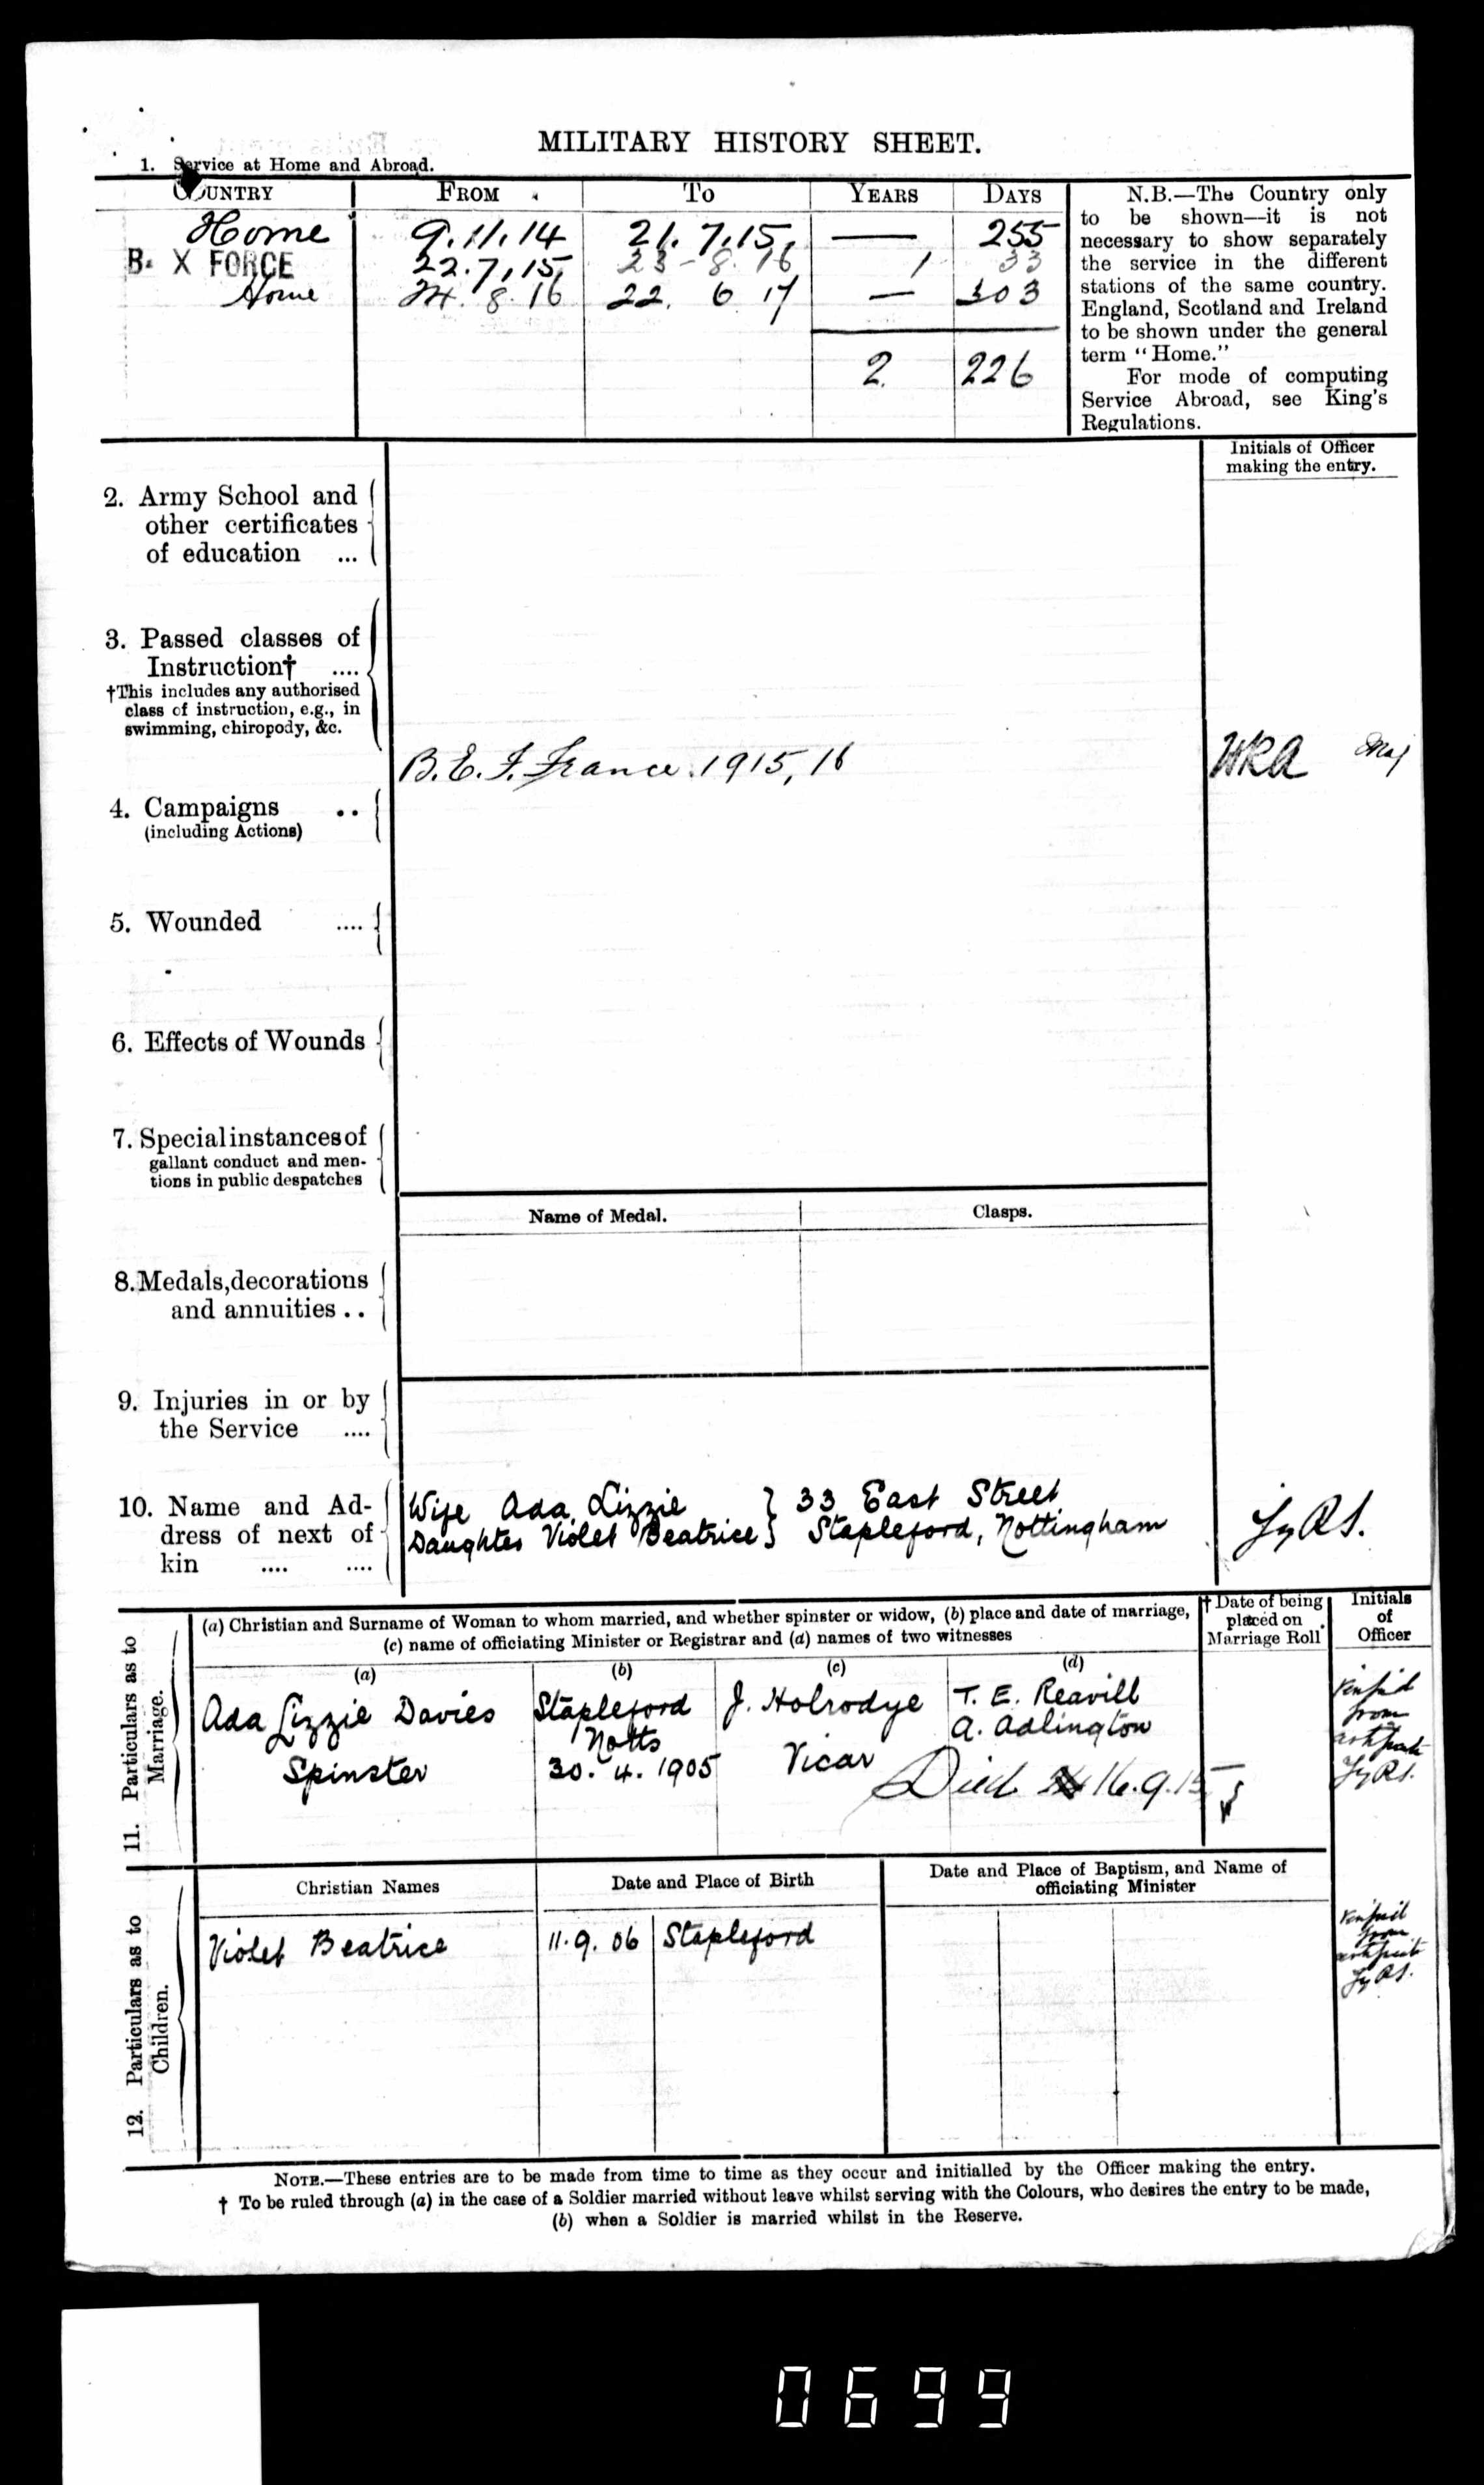 MILITARY HISTORY SHEET.
1. Service at Home and Abroad.
COUNTRY FROM TO YEARS DAYS
Home 9.11.14 21.7.15. — 255
B. X FORCE 22.7.15. 23-8.16 1 33
Home 24.8.16 22.6.17 — 303
2 226
N.B.—The Country only
to be shown—it is not
necessary to show separately
the service in the different
stations of the same country.
England, Scotland and Ireland
to be shown under the general
term "Home."
For mode of computing
Service Abroad, see King's
Regulations.
Initials of Officer
making the entry.
2. Army School and
other certificates
of education ...
3. Passed classes of
Instruction† ....
†This includes any authorised
class of instruction, e.g., in
swimming, chiropody, &c.
B.E.F. France. 1915, 16 WRA Maj
4. Campaigns ..
(including Actions)
5. Wounded ....
6. Effects of Wounds
7. Special instances of
gallant conduct and men-
tions in public despatches
Name of Medal. Clasps.
8. Medals, decorations
and annuities ..
9. Injuries in or by
the Service ....
10. Name and Ad-
dress of next of
kin .... ....
Wife Ada Lizzie } 33 East Street
Daughter Violet Beatrice } Stapleford, Nottingham
11. Particulars as to
Marriage.
(a) Christian and Surname of Woman to whom married, and whether spinster or widow, (b) place and date of marriage,
(c) name of officiating Minister or Registrar and (d) names of two witnesses
† Date of being
placed on
Marriage Roll
Initials
of
Officer
(a) (b) (c) (d)
Ada Lizzie Davies Stapleford J. Holrodye T. E. Reavill
Notts A. Adlington
Spinster 30.4.1905 Vicar
Died 16.9.15
from
12. Particulars as to
Children.
Christian Names Date and Place of Birth Date and Place of Baptism, and Name of
officiating Minister
Violet Beatrice 11.9.06 Stapleford
from
NOTE.—These entries are to be made from time to time as they occur and initialled by the Officer making the entry.
† To be ruled through (a) in the case of a Soldier married without leave whilst serving with the Colours, who desires the entry to be made,
(b) when a Soldier is married whilst in the Reserve.
0699